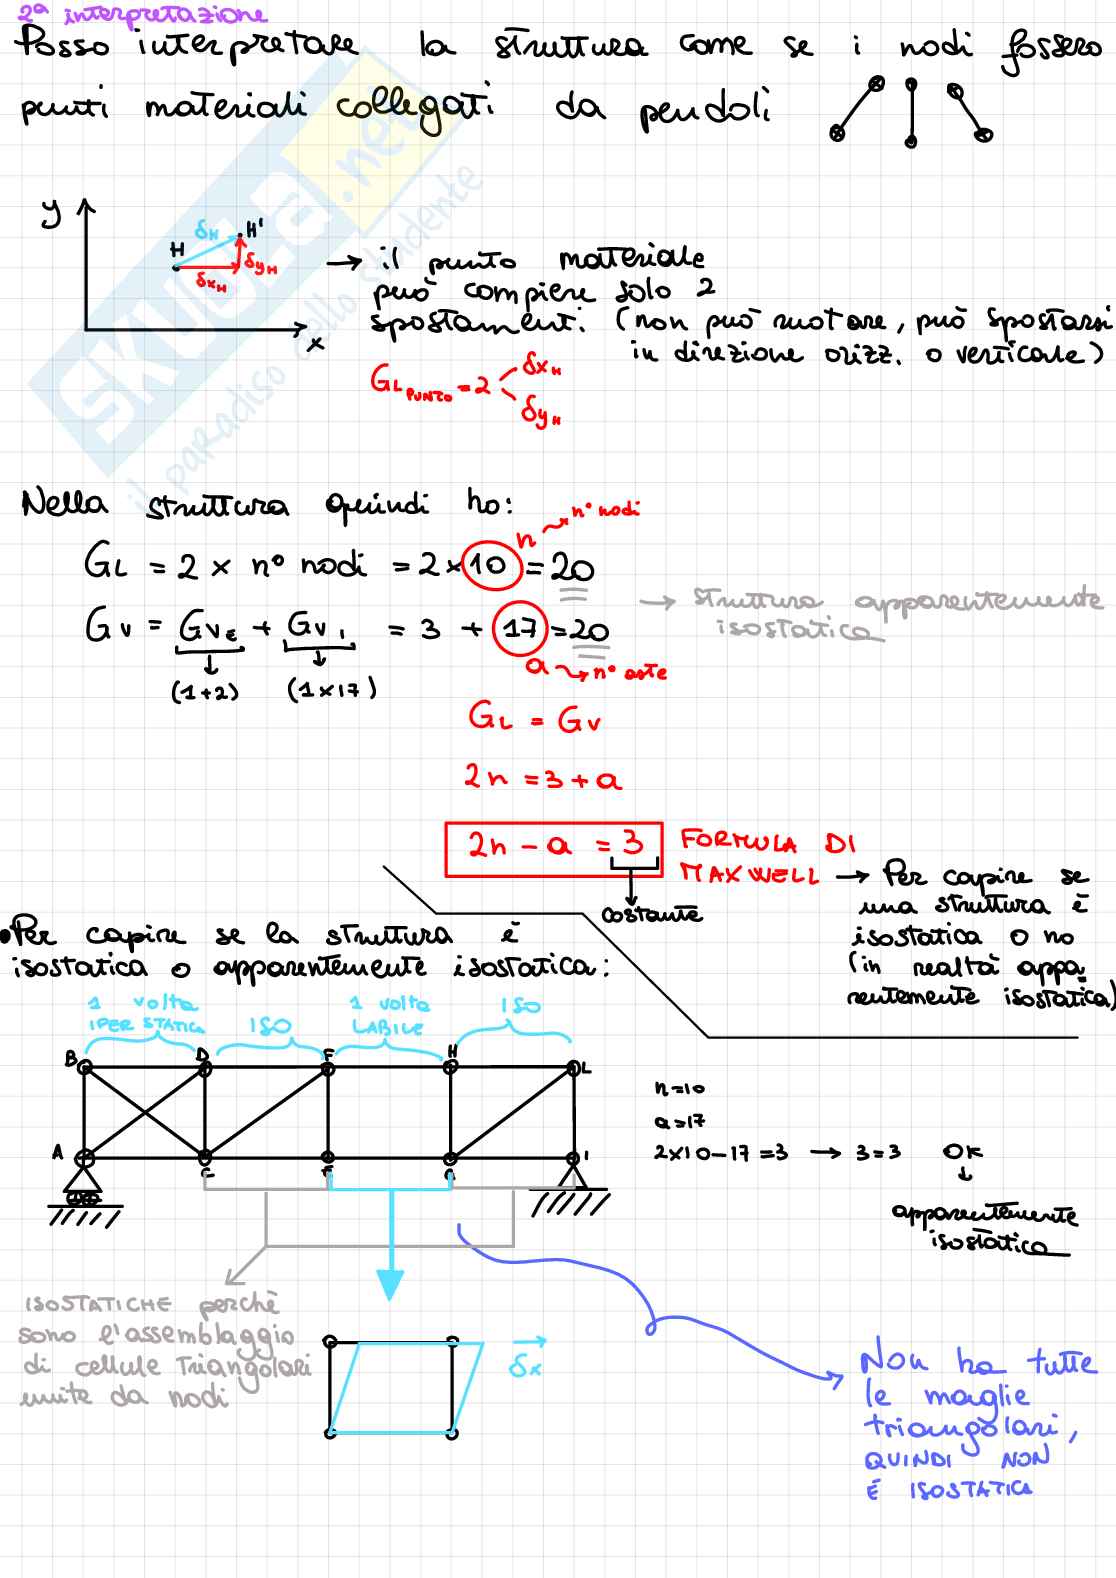 2ª interpretazione
Posso interpretare la struttura come se i nodi fossero
punti materiali collegati da pendoli
y
H
δH
H'
δxH
δyH
x
→ il punto materiale
può compiere solo 2
spostamenti. (non può ruotare, può spostarsi
in direzione orizz. o verticale)
GL PUNTO = 2
δxH
δyH
SKUOLA.net
il paradiso dello studente
Nella struttura quindi ho:
n → n° nodi
GL = 2 x n° nodi = 2x10 = 20
→ struttura apparentemente
isostatica
GV = GVE + GVI = 3 + 17 = 20
(1+2) (1x17)
a → n° aste
GL = GV
2n = 3 + a
2n - a = 3
FORMULA DI
MAXWELL → Per capire se
una struttura è
isostatica o no
(in realtà appa
rentemente isostatica)
costante
• Per capire se la struttura è
isostatica o apparentemente isostatica:
1 volta
IPERSTATICA
ISO
1 volta
LABILE
ISO
B D F H L
A C E G I
n=10
a=17
2x10-17=3 → 3=3 OK
apparentemente
isostatica
ISOSTATICHE perchè
sono l'assemblaggio
di cellule Triangolari
unite da nodi
δx
Non ha tutte
le maglie
triangolari,
QUINDI NON
È ISOSTATICA